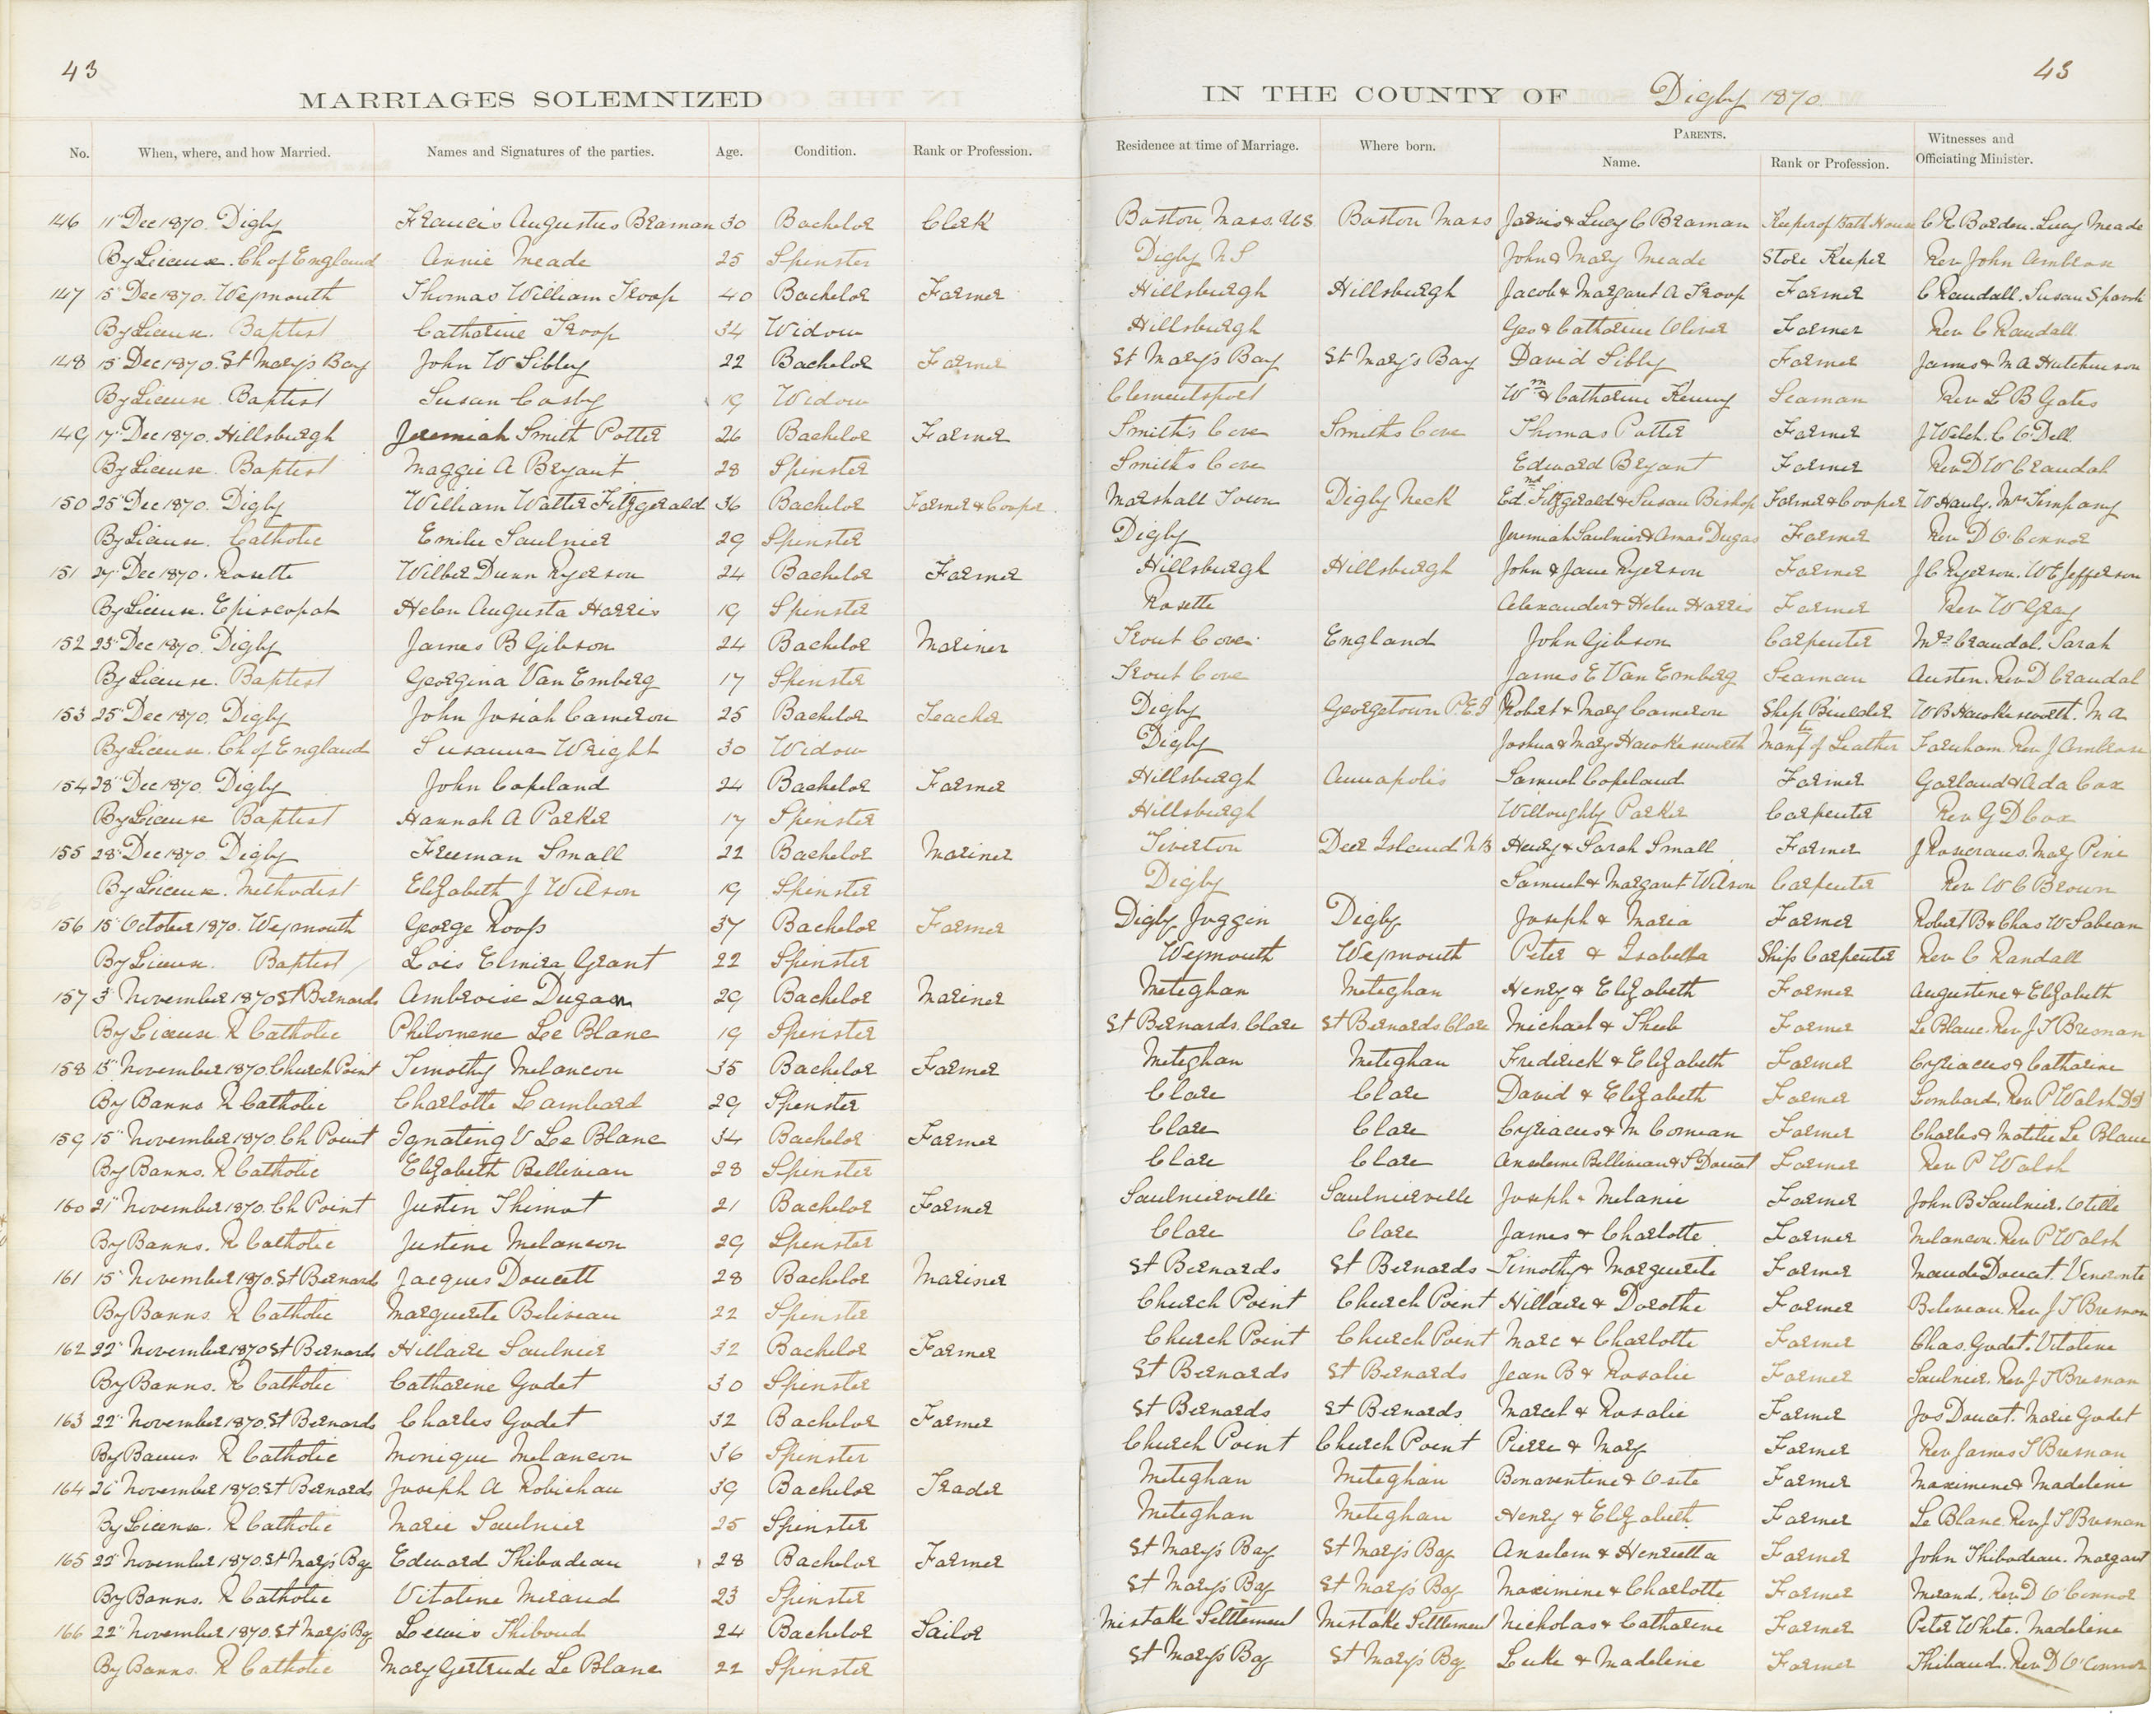 43
MARRIAGES SOLEMNIZED
No. When, where, and how Married. Names and Signatures of the parties. Age. Condition. Rank or Profession.
146 11" Dec 1870. Digby Francis Augustus Braman 30 Bachelor Clerk
By License. Ch of England Annie Meade 25 Spinster
147 15" Dec 1870. Weymouth Thomas William Troop 40 Bachelor Farmer
By License. Baptist Catharine Troop 34 Widow
148 15" Dec 1870. St Mary's Bay John W Sibley 22 Bachelor Farmer
By License Baptist Susan Cosby 19 Widow
149 17" Dec 1870. Hillsburgh Jeremiah Smith Potter 26 Bachelor Farmer
By License. Baptist Maggie A Bryant 28 Spinster
150 25" Dec 1870. Digby William Walter Fitzgerald 36 Bachelor Farmer & Cooper
By License. Catholic Emilie Saulnier 29 Spinster
151 27" Dec 1870. Rosette Wilber Dunn Ryerson 24 Bachelor Farmer
By License. Episcopal Helen Augusta Harris 19 Spinster
152 23" Dec 1870. Digby James B Gibson 24 Bachelor Mariner
By License. Baptist Georgina Van Emberg 17 Spinster
153 25" Dec 1870. Digby John Josiah Cameron 25 Bachelor Teacher
By License. Ch of England Susanna Wright 30 Widow
154 28" Dec 1870. Digby John Copeland 24 Bachelor Farmer
By License Baptist Hannah A Parker 17 Spinster
155 28" Dec 1870. Digby Freeman Small 22 Bachelor Mariner
By License. Methodist Elizabeth J Wilson 19 Spinster
156 15" October 1870. Weymouth George Roop 37 Bachelor Farmer
By License. Baptist Lois Elmira Grant 22 Spinster
157 3" November 1870 St Bernards Ambroise Dugan 29 Bachelor Mariner
By License. R Catholic Philomene Le Blanc 19 Spinster
158 15" November 1870. Church Point Timothy Melancon 35 Bachelor Farmer
By Banns R Catholic Charlotte Lambard 29 Spinster
159 15" November 1870. Ch Point V Le Blanc 34 Bachelor Farmer
By Banns. R Catholic Elizabeth Belliveau 28 Spinster
160 21" November 1870. Ch Point Justin Thimot 21 Bachelor Farmer
By Banns. R Catholic Justine Melancon 29 Spinster
161 15" November 1870. St Bernard Jacques Doucett 28 Bachelor Mariner
By Banns. R Catholic Marguerite Beliveau 22 Spinster
162 22" November 1870 St Bernards Hillaire Saulnier 32 Bachelor Farmer
By Banns. R Catholic Catharine Godet 30 Spinster
163 22" November 1870. St Bernards Charles Godet 32 Bachelor Farmer
By Banns R Catholic Monique Melancon 36 Spinster
164 26" November 1870. St Bernards Joseph A Robichau 39 Bachelor Trader
By License. R Catholic Marie Saulnier 25 Spinster
165 22" November 1870. St Mary's Bay Edward Thibodeau 28 Bachelor Farmer
By Banns. R Catholic Vitaline Miraud 23 Spinster
166 22" November 1870. St Mary's Bay Lewis Thibaud 24 Bachelor Sailor
By Banns. R Catholic Mary Gertrude Le Blanc 22 Spinster
43
IN THE COUNTY OF Digby 1870.
Residence at time of Marriage. Where born. PARENTS. Name. Rank or Profession. Witnesses and Officiating Minister.
Boston Mass. U.S. Boston Mass Jarvis & Lucy C Braman Keeper of Bath House C R Borden. Lucy Meade
Digby N S John & Mary Meade Store Keeper Rev John Ambrose
Hillsburgh Hillsburgh Jacob & Margaret A Troop Farmer C Randall. Susan
Hillsburgh Geo & Catharine Oliver Farmer Rev C Randall
St Mary's Bay St Mary's Bay David Sibly Farmer James & M A Hutchinson
Clementsport Wm & Catharine Kenny Seaman Rev L B Gates
Smith's Cove Smiths Cove Thomas Potter Farmer J Welch. C O'Dell
Smiths Cove Edward Bryant Farmer Rev D W Crandal
Marshall Town Digby Neck Ed. Fitzgerald & Susan Bishop Farmer & Cooper W Hardy. Mrs Timpany
Digby Jeremiah Saulnier & Dugas Farmer Rev D O'Connor
Hillsburgh Hillsburgh John & Jane Ryerson Farmer J C Ryerson. W E Jefferson
Rosette Alexander & Helen Harris Farmer Rev W Gray
Trout Cove England John Gibson Carpenter Mrs Crandal. Sarah
Trout Cove James E Van Emberg Seaman Austen. Rev D Crandal
Digby Georgetown P.E.I Robert & Mary Cameron Ship Builder W B Hawkesworth. M A
Digby Joshua & Mary Hawkesworth Manf of Leather Farnham Rev J Ambrose
Hillsburgh Annapolis Samuel Copeland Farmer Garland & Ada Cox
Hillsburgh Willoughby Parker Carpenter Rev G D Cox
Tiverton Deer Island N B Henry & Sarah Small Farmer J Rosecrans. Mary Pine
Digby Samuel & Margaret Wilson Carpenter Rev W C Brown
Digby Joggin Digby Joseph & Maria Farmer Robert B & Chas W Sabean
Weymouth Weymouth Peter & Isabella Ship Carpenter Rev C Randall
Meteghan Meteghan Henry & Elizabeth Farmer Augustine & Elizabeth
St Bernards. Clare St Bernards Clare Michael & Farmer Le Blanc. Rev J T Bresnan
Meteghan Meteghan Frederick & Elizabeth Farmer Cyriacus & Catharine
Clare Clare David & Elizabeth Farmer Lombard. Rev P Walsh
Clare Clare Cyriacus & M Comeau Farmer Charles & Matilie Le Blanc
Clare Clare Anselme Belliveau & S Doucet Farmer Rev P Walsh
Saulnierville Saulnierville Joseph & Melanie Farmer John B Saulnier. Otille
Clare Clare James & Charlotte Farmer Melancon. Rev P Walsh
St Bernards St Bernards Timothy & Marguerite Farmer Maude Doucet.
Church Point Church Point Hillaire & Dorothe Farmer Beliveau. Rev J T Bresnan
Church Point Church Point Marc & Charlotte Farmer Chas. Godet. Vitaline
St Bernards St Bernards Jean B & Rosalie Farmer Saulnier. Rev J T Bresnan
St Bernards St Bernards Marcel & Rosalie Farmer Jos Doucet. Marie Godet
Church Point Church Point Pierre & Mary Farmer Rev James T Bresnan
Meteghan Meteghan Bonaventine & Osite Farmer Maximine & Madeleine
Meteghan Meteghan Henry & Elizabeth Farmer Le Blanc. Rev J T Bresnan
St Mary's Bay St Mary's Bay Anselem & Henrietta Farmer John Thibodeau. Margaret
St Mary's Bay St Mary's Bay Maximine & Charlotte Farmer Merand. Rev D O'Connor
Mistake Settlement Mistake Settlement Nicholas & Catharine Farmer Peter White. Madeline
St Mary's Bay St Mary's Bay Luke & Madeleine Farmer Thibaud. Rev D O'Connor